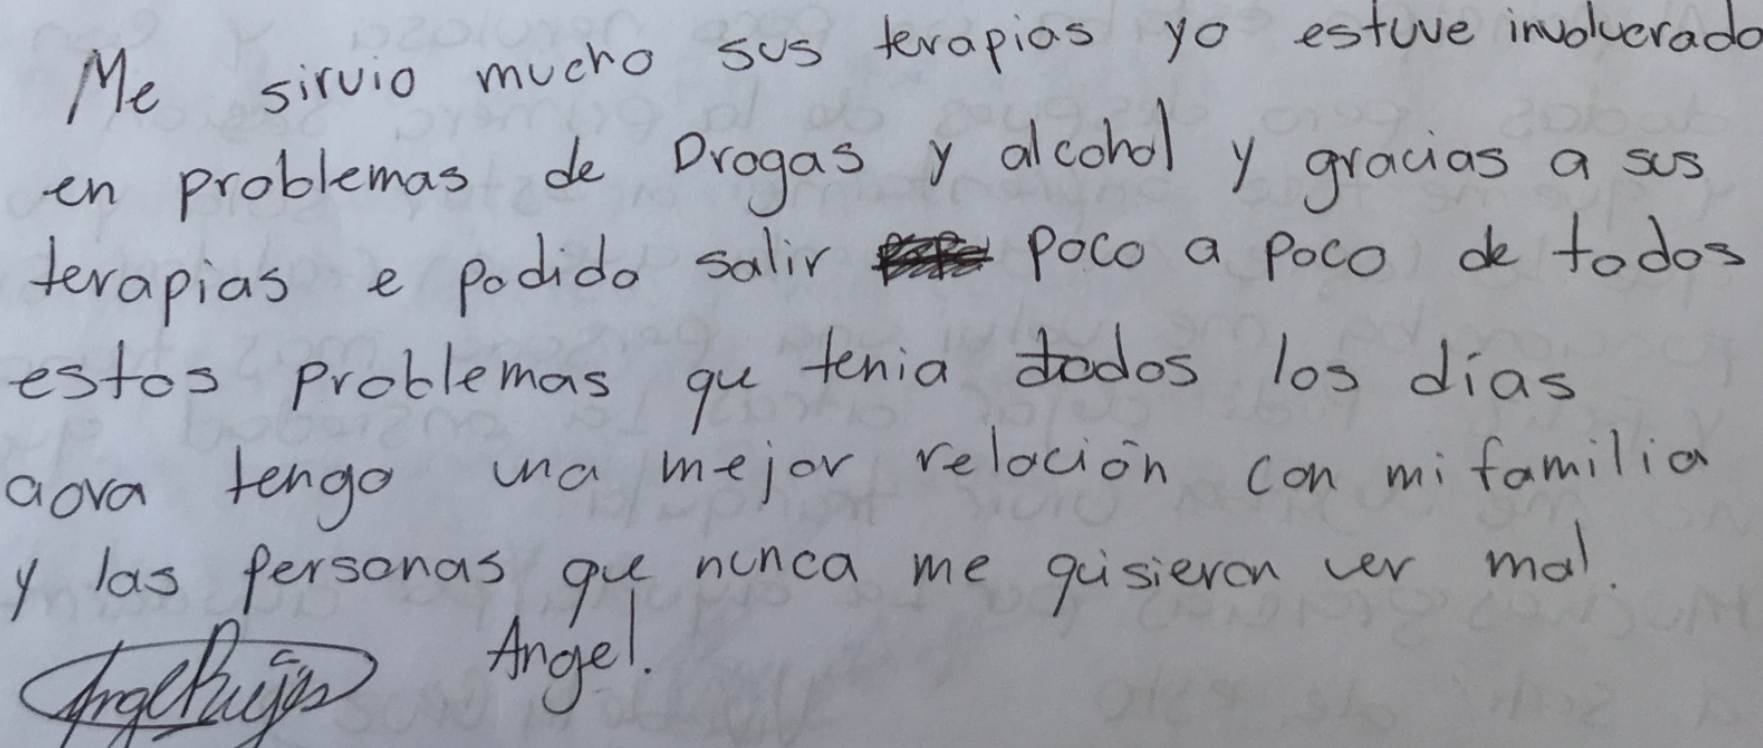 Me sirvio mucho sus terapias yo estuve involucrado
en problemas de Drogas y alcohol y gracias a sus
terapias e podido salir poco a poco de todos
estos problemas qu tenia todos los días
aora tengo una mejor relación con mi familia
y las personas que nunca me quisieron ver mal.
Angel.